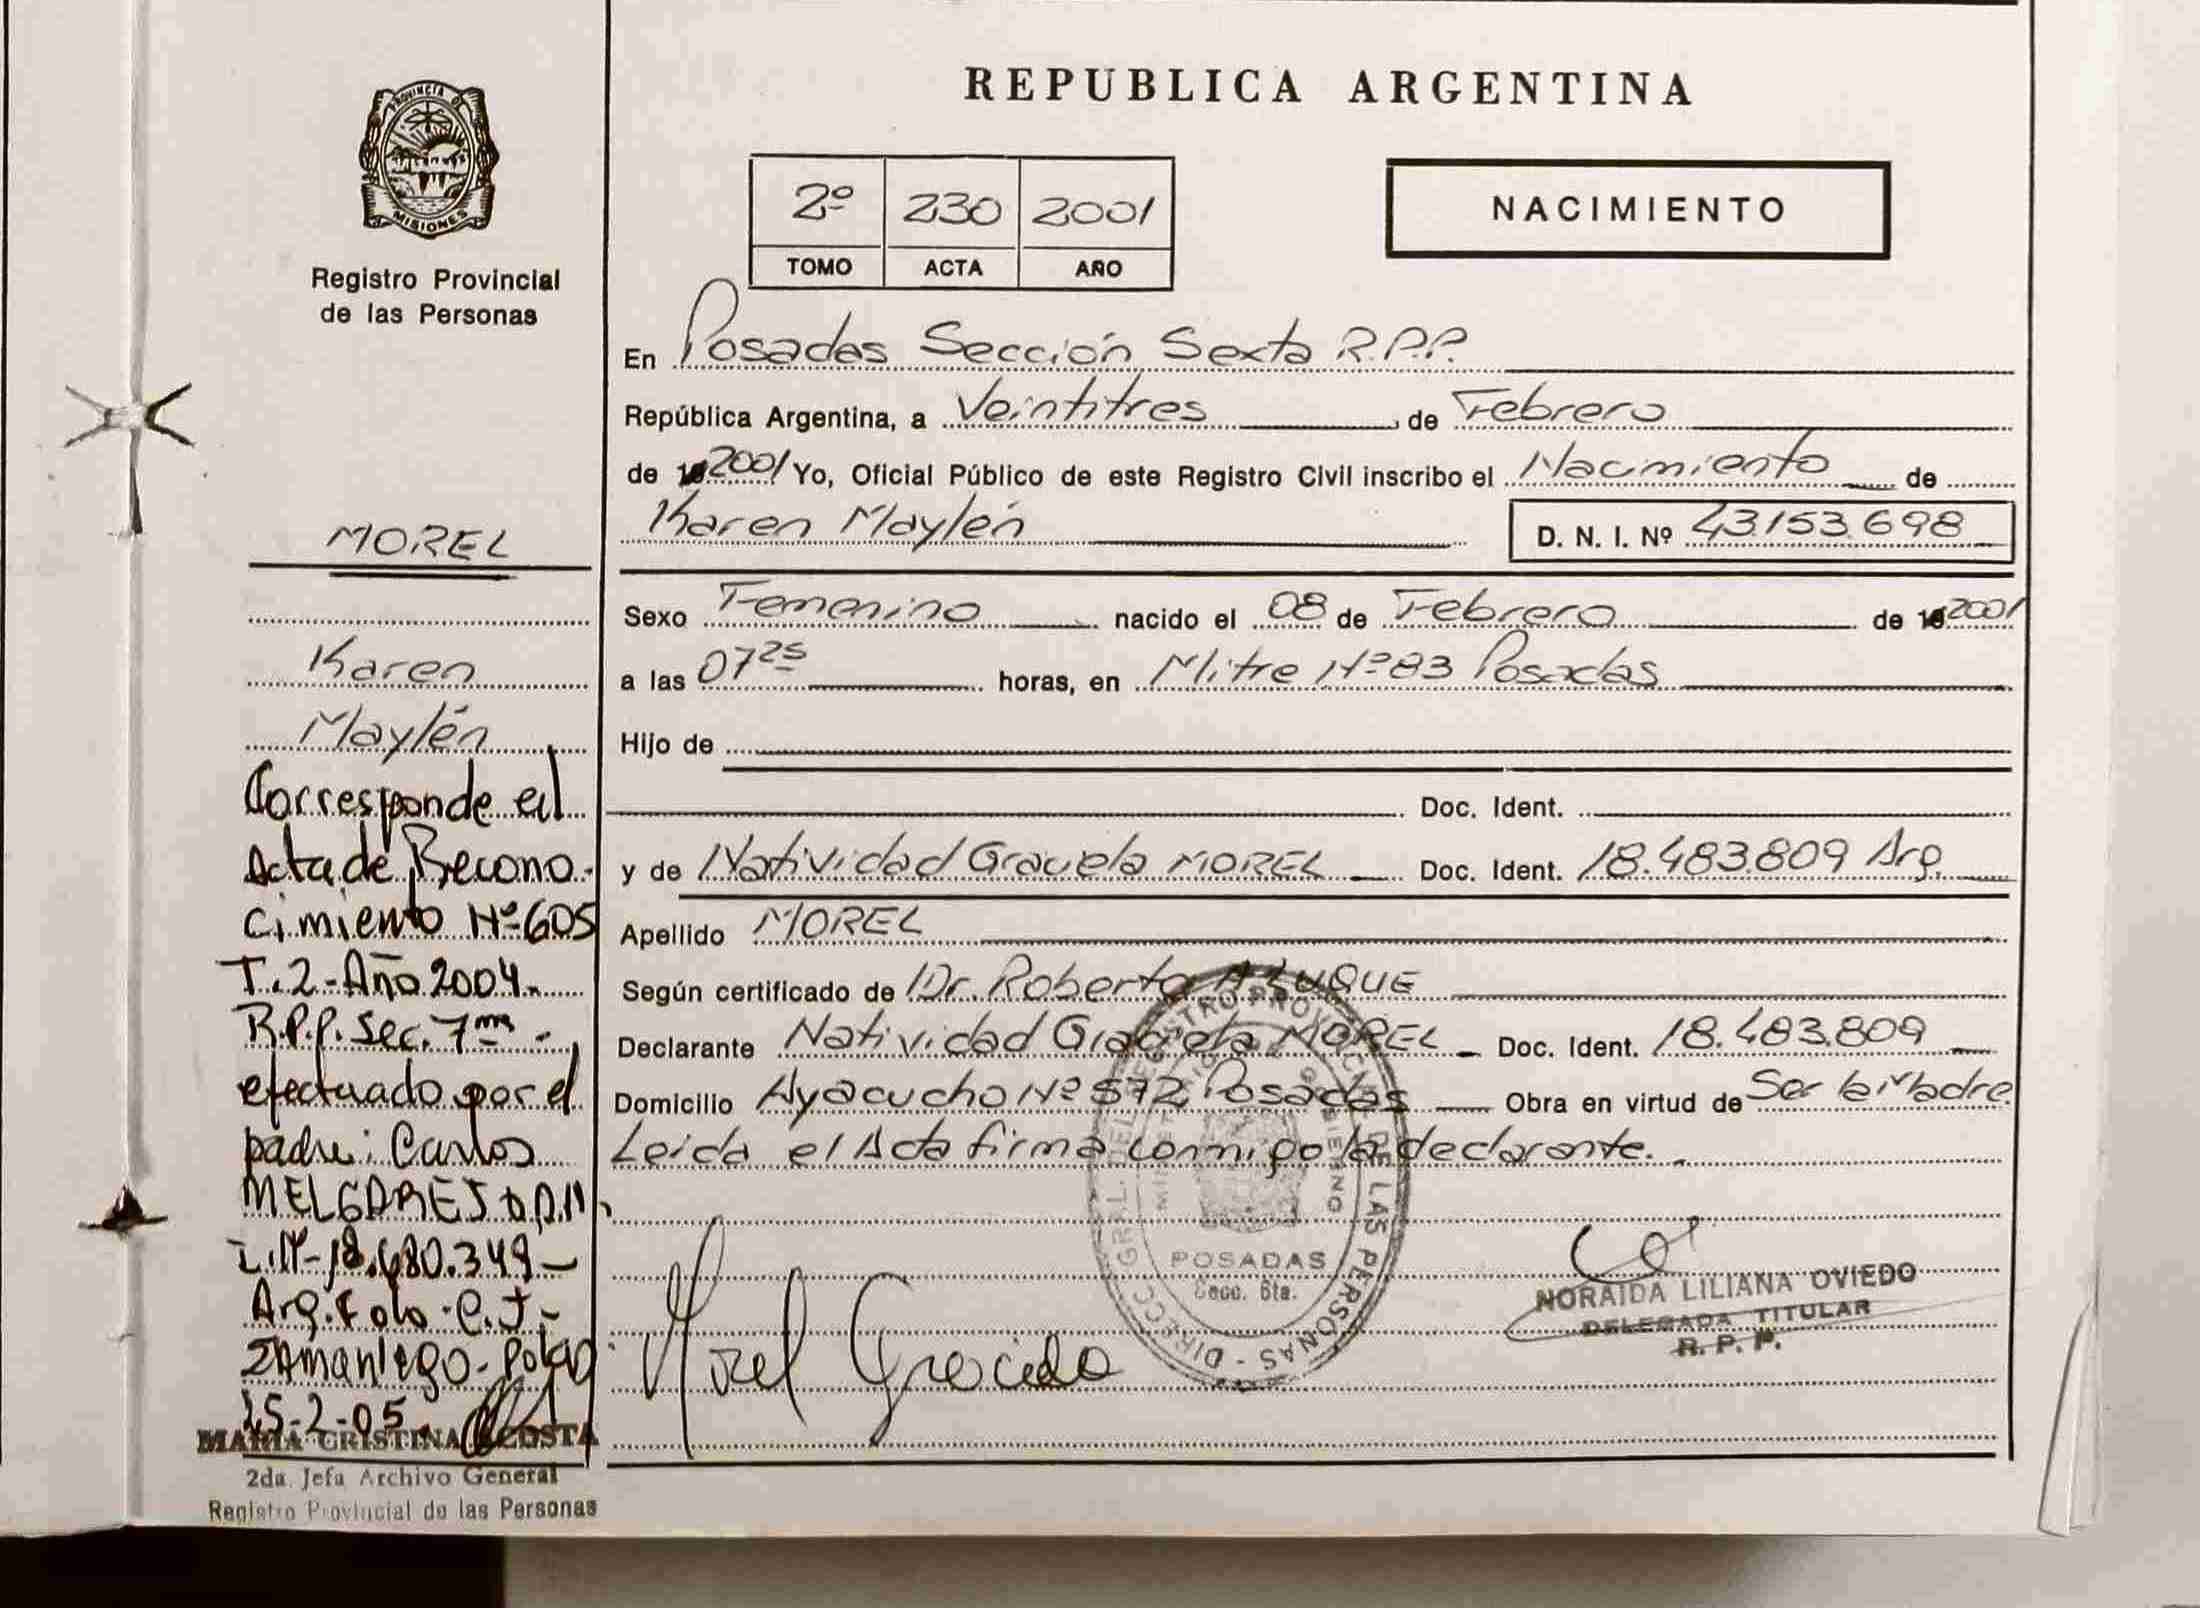 PROVINCIA DE
MISIONES
Registro Provincial
de las Personas
MOREL
Karen
Maylén
Corresponde el
Acta de Recono-
cimiento Nº 605
T. 2 - Año 2004.
R.P.P. Sec. 7ma -
efectuado por el
padre: Carlos
MELGAREJO D.N.
I. Nº 18.680.349 -
Arg. Folo C.J.
ZAmaniego - Pdas
15-2-05
MARIA CRISTINA ACOSTA
2da. Jefa Archivo General
Registro Provincial de las Personas
REPUBLICA ARGENTINA
2º 230 2001
TOMO ACTA AÑO
NACIMIENTO
En Posadas Sección Sexta R.P.P.
República Argentina, a Veintitres de Febrero
de 19 2001 Yo, Oficial Público de este Registro Civil inscribo el Nacimiento de
Karen Maylén D. N. I. Nº 43.153.698
Sexo Femenino nacido el 08 de Febrero de 19 2001
a las 07 25 horas, en Mitre Nº 83 Posadas
Hijo de
Doc. Ident.
y de Natividad Graciela MOREL Doc. Ident. 18.483.809 Arg.
Apellido MOREL
Según certificado de Dr. Roberto A. LUQUE
Declarante Natividad Graciela MOREL Doc. Ident. 18.483.809
Domicilio Ayacucho Nº 572 Posadas Obra en virtud de Ser la Madre
Leida el Acta firma conmigo la declarante.
DIRECC. GRAL. DEL REGISTRO PROVINCIAL DE LAS PERSONAS
POSADAS
Secc. 6ta.
Morel Graciela
NORAIDA LILIANA OVIEDO
DELEGADA TITULAR
R. P. P.